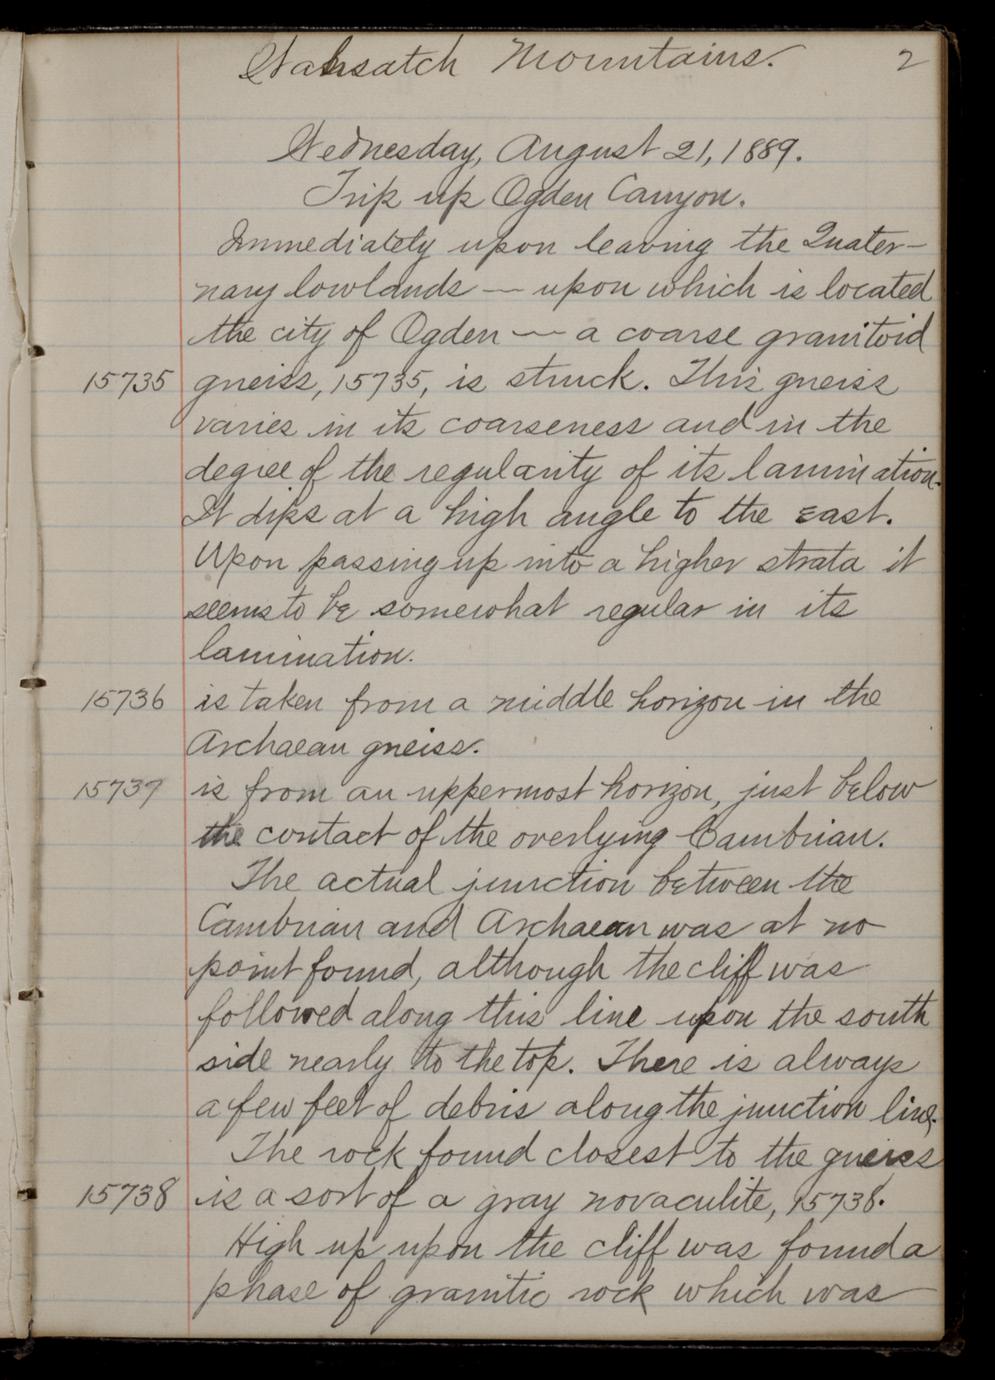 Wahsatch Mountains. 2
Wednesday, August 21, 1889.
Trip up Ogden Canyon.
Immediately upon leaving the Quater-
nary lowlands — upon which is located
the city of Ogden — a coarse granitoid
15735 gneiss, 15735, is struck. This gneiss
varies in its coarseness and in the
degree of the regularity of its lamination.
It dips at a high angle to the east.
Upon passing up into a higher strata it
seems to be somewhat regular in its
lamination.
15736 is taken from a middle horizon in the
Archaean gneiss.
15737 is from an uppermost horizon, just below
the contact of the overlying Cambrian.
The actual junction between the
Cambrian and Archaean was at no
point found, although the cliff was
followed along this line upon the south
side nearly to the top. There is always
a few feet of debris along the junction line.
The rock found closest to the gneiss
15738 is a sort of a gray novaculite, 15738.
High up upon the cliff was found a
phase of granitic rock which was